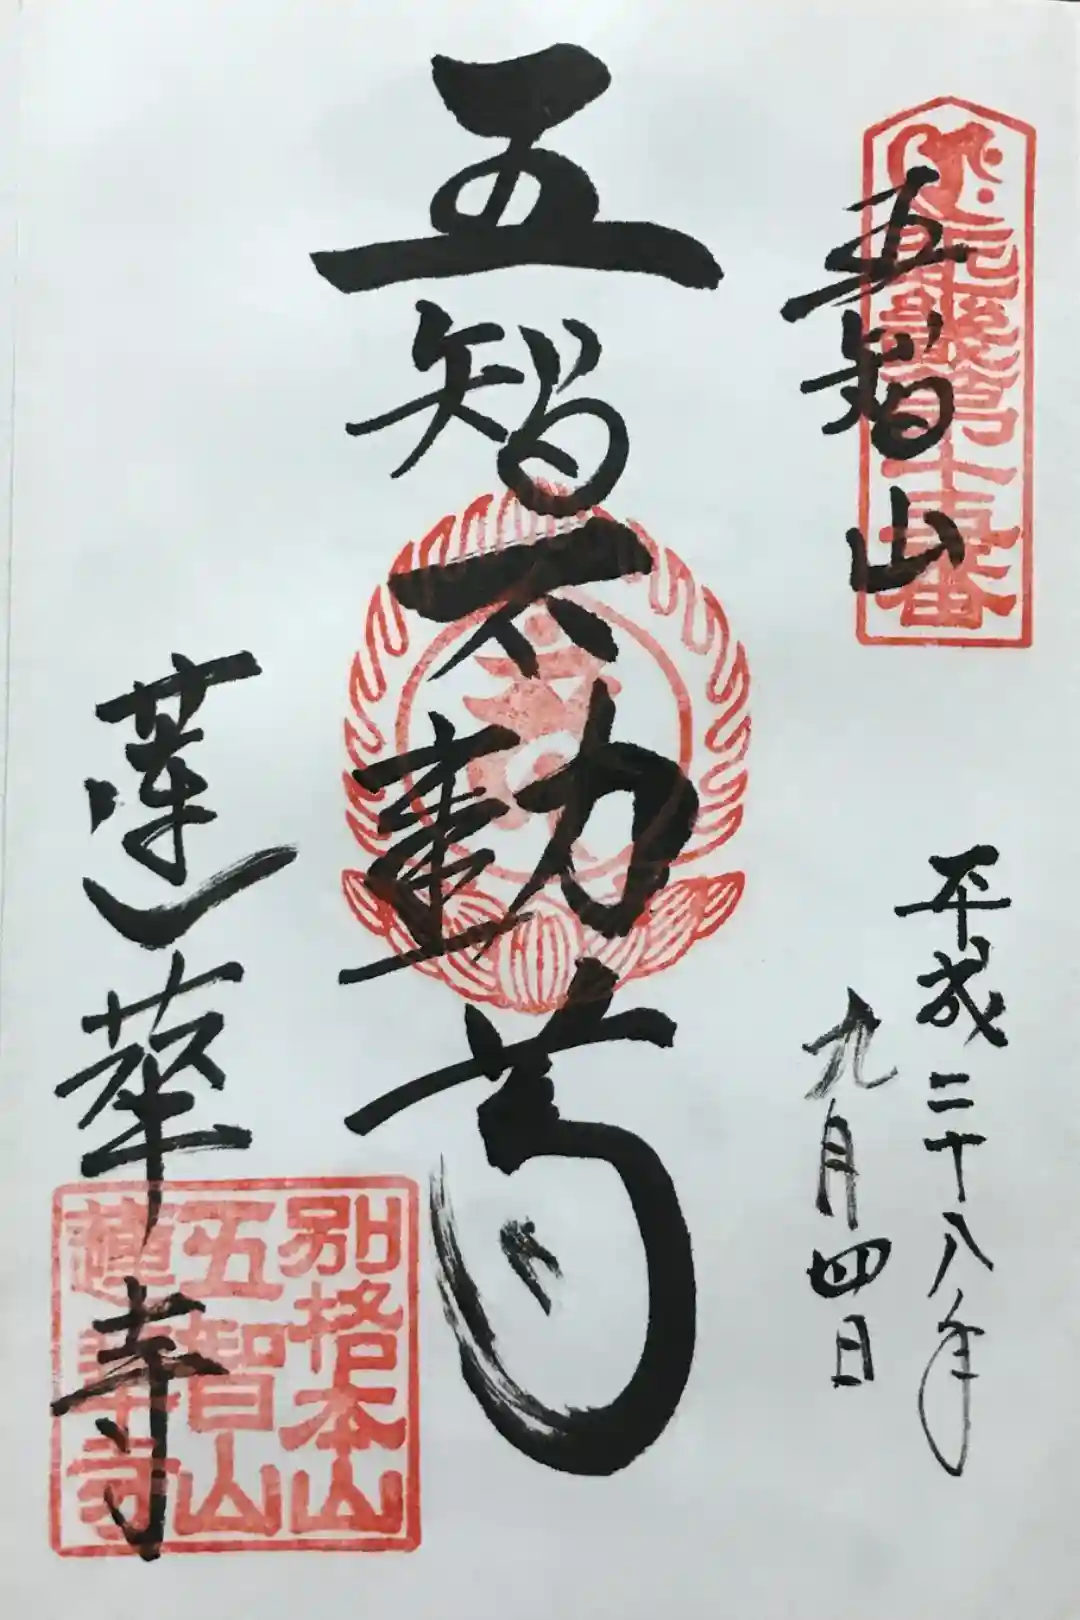 五智山
第十五番
平成二十八年
九月四日
五智不動尊
蓮華寺
別格本山
五智山
蓮華寺